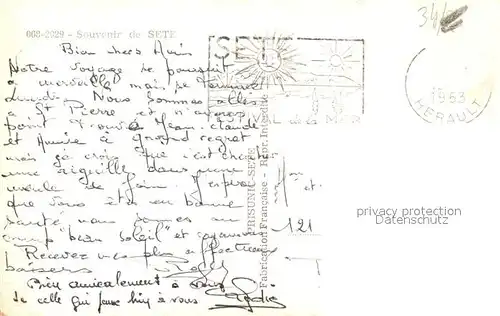 068-2029 - Souvenir de SETE
34
Bien chers Amis
SETE
Notre voyage se poursuit
à merveille mais se termine
Lundi. Nous sommes allés
à St Pierre et n'avons
point trouvé Jean-Claude
et Annie à grand regret
mais je crois que c'est chercher
une aiguille dans une
meule de foin. J'espère
que vous êtes en bonne
santé, nous sommes au
camp "plein soleil" et
Recevez nos plus affectueux
baisers
Bien amicalement à vous
de celle qui pense bien à vous
DE LA MER
1963
HERAULT
PRISUNIC - SETE
Fabrication Française - Repr. Interdite
et
121
privacy protection
Datenschutz